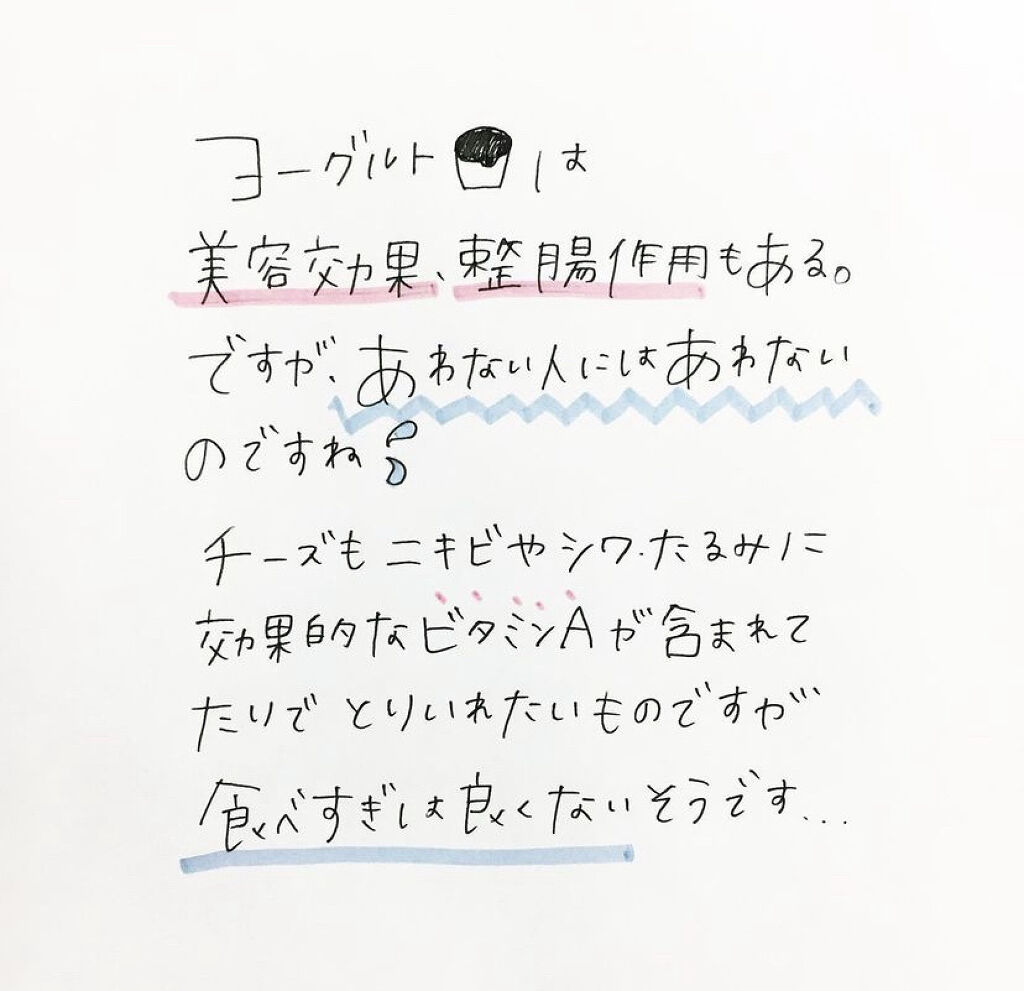 ヨーグルトは
美容効果、整腸作用もある。
ですが、あわない人にはあわない
のですね
チーズもニキビやシワ・たるみに
効果的なビタミンAが含まれて
たりでとりいれたいものですが
食べすぎは良くないそうです...